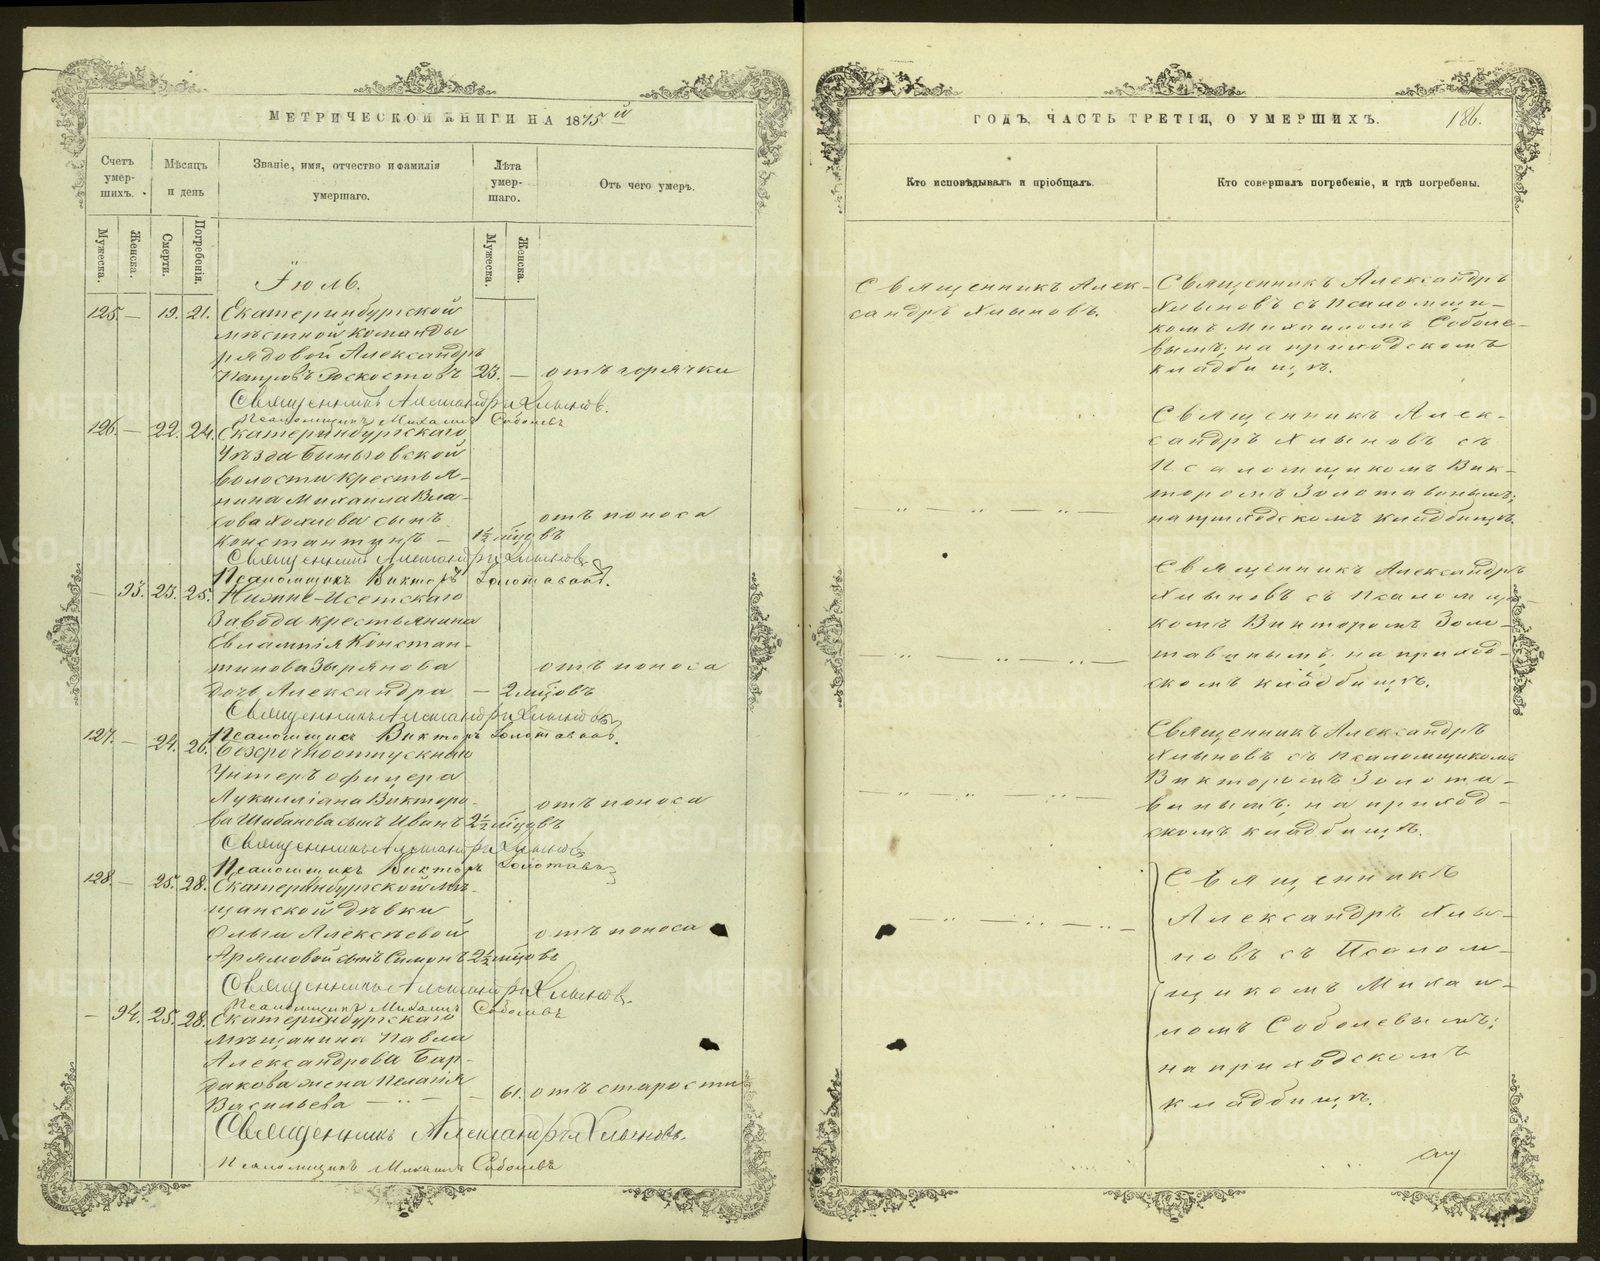 МЕТРИЧЕСКОЙ КНИГИ НА 1875й
Счетъ умер-шихъ.
Мѣсяцъ и день
Званіе, имя, отчество и фамилія умершаго.
Лѣта умер-шаго.
Отъ чего умеръ.
Мужеска.
Женска.
Смерти.
Погребенія.
Мужеска.
Женска.
Іюль.
125. — 19. 21. Екатеринбургской
мѣстной команды
рядовой Александръ
Петровъ 23. — отъ горячки
Священникъ Александръ Хлыновъ.
Псаломщикъ Михаилъ Соболевъ
126. — 22. 24. Екатеринбургскаго
Уѣзда Быньговской
волости крестья-
нина Михаила Вла-
сова Хохлова сынъ
Константинъ — 1½ мѣцовъ отъ поноса
Священникъ Александръ Хлыновъ
Псаломщикъ Викторъ Золотавинъ.
— 93. 23. 25. Нижне-Исетскаго
Завода крестьянина
Евлампія Констан-
тинова Зырянова
дочь Александра — 2 мѣцовъ отъ поноса
Священникъ Александръ Хлыновъ
Псаломщикъ Викторъ Золотавинъ.
127. — 24. 26. Безсрочноотпускнаго
Унтеръ офицера
Лукилліана Викторо-
ва Шабанова сынъ Иванъ 2½ мѣцовъ отъ поноса
Священникъ Александръ Хлыновъ
Псаломщикъ Викторъ Золотавинъ
128. — 25. 28. Екатеринбургской мѣ-
щанской дѣвки
Ольги Алексѣевой
Арямовой сынъ Симонъ 2½ мѣцовъ отъ поноса
Священникъ Александръ Хлыновъ.
Псаломщикъ Михаилъ Соболевъ
— 94. 25. 28. Екатеринбургскаго
мѣщанина Павла
Александрова Бар-
дакова жена Пелагія
Васильева — „ — — 61. отъ старости
Священникъ Александръ Хлыновъ.
Псаломщикъ Михаилъ Соболевъ
ГОДЪ, ЧАСТЬ ТРЕТІЯ, О УМЕРШИХЪ. 186.
Кто исповѣдывалъ и пріобщалъ.
Кто совершалъ погребеніе, и гдѣ погребены.
Священникъ Алек-
сандръ Хлыновъ.
Священникъ Александръ
Хлыновъ съ Псаломщи-
комъ Михаиломъ Соболе-
вымъ; на приходскомъ
кладбищѣ.
— „ — — „ —
Священникъ Алек-
сандръ Хлыновъ съ
Псаломщикомъ Вик-
торомъ Золотавинымъ;
на приходскомъ кладбищѣ.
— „ — — „ —
Священникъ Александръ
Хлыновъ съ Псаломщи-
комъ Викторомъ Золо-
тавинымъ; на приход-
скомъ кладбищѣ.
— „ — „ — „ —
Священникъ Александръ
Хлыновъ съ Псаломщикомъ
Викторомъ Золота-
винымъ; на приход-
скомъ кладбищѣ.
— „ — „ — „ —
Священникъ
Александръ Хлы-
новъ съ Псалом-
щикомъ Михаи-
ломъ Соболевымъ;
на приходскомъ
кладбищѣ.
METRIKI.GASO-URAL.RU